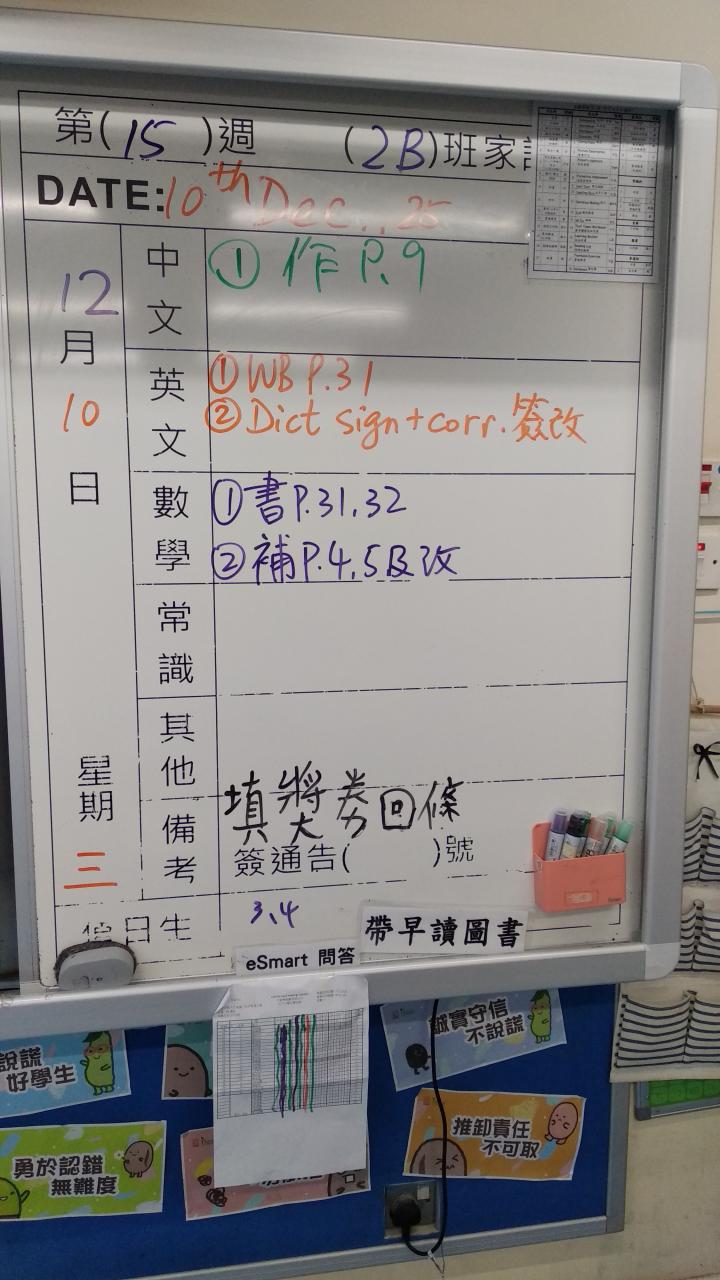 第(15)週 (2B)班家
DATE: 10th Dec., 25
12月10日 星期三
中文
① 作 P.9
英文
① WB P.31
② Dict sign + corr. 簽改
數學
① 書P.31,32
② 補P.4,5及改
常識
其他
備考
填獎券回條
簽通告( )號
值日生 3、4
eSmart 問答
帶早讀圖書
說謊
好學生
誠實守信
不說謊
勇於認錯
無難度
推卸責任
不可取